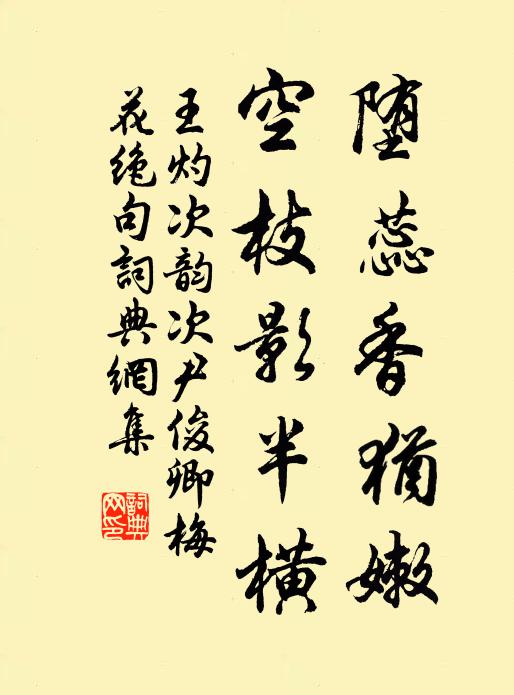 堕蕊香猶嫩
空枝影半橫
王灼次韵次尹俊卿梅
花绝句詞典網集
詞典网印